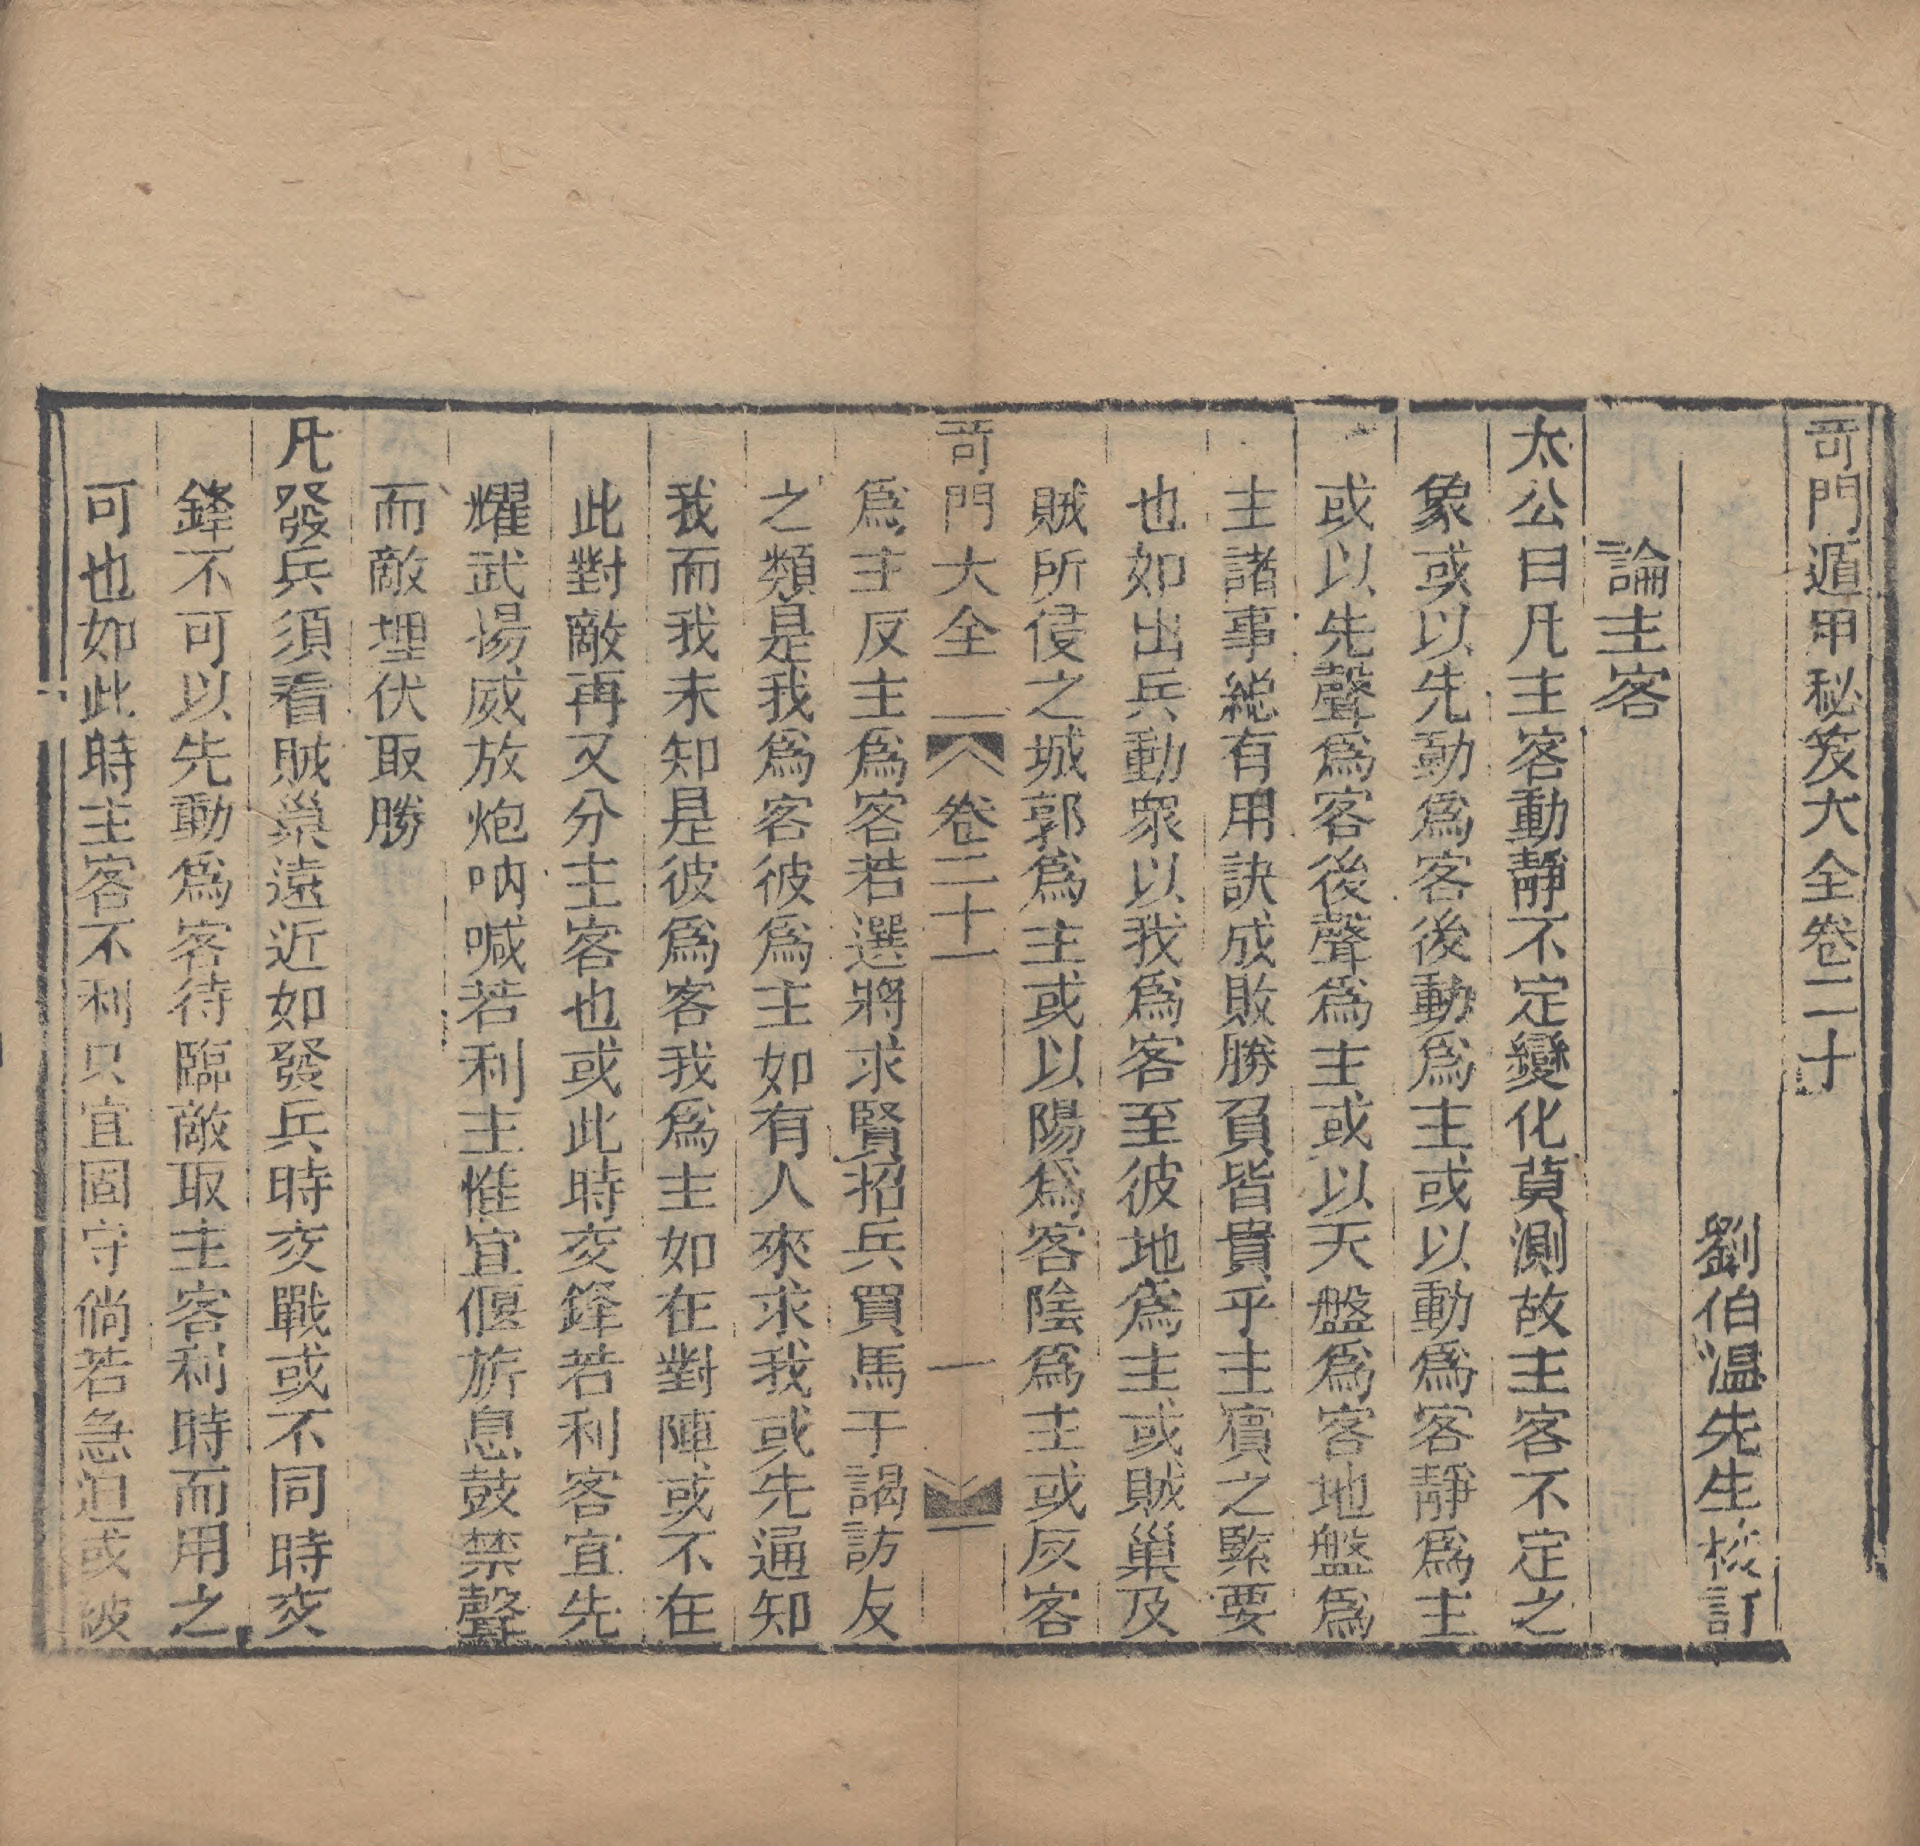 奇門遁甲秘笈大全卷二十
劉伯温先生校訂
論主客
太公曰凡主客動靜不定變化莫測故主客不定之
象或以先動爲客後動爲主或以動爲客靜爲主
或以先聲爲客後聲爲主或以天盤爲客地盤爲
主諸事総有用訣成敗勝負皆貴乎主賔之緊要
也如出兵動衆以我爲客至彼地爲主或賊巢及
賊所侵之城郭爲主或以陽爲客陰爲主或反客
奇門大全 卷二十一 一
爲主反主爲客若選將求賢招兵買馬于謁訪友
之類是我爲客彼爲主如有人來求我或先通知
我而我未知是彼爲客我爲主如在對陣或不在
此對敵再又分主客也或此時交鋒若利客宜先
耀武揚威放炮吶喊若利主惟宜偃旂息鼓禁聲
而敵埋伏取勝
凡發兵須看賊巢遠近如發兵時交戰或不同時交
鋒不可以先動爲客待臨敵取主客利時而用之
可也如此時主客不利只宜固守倘若急迫或被